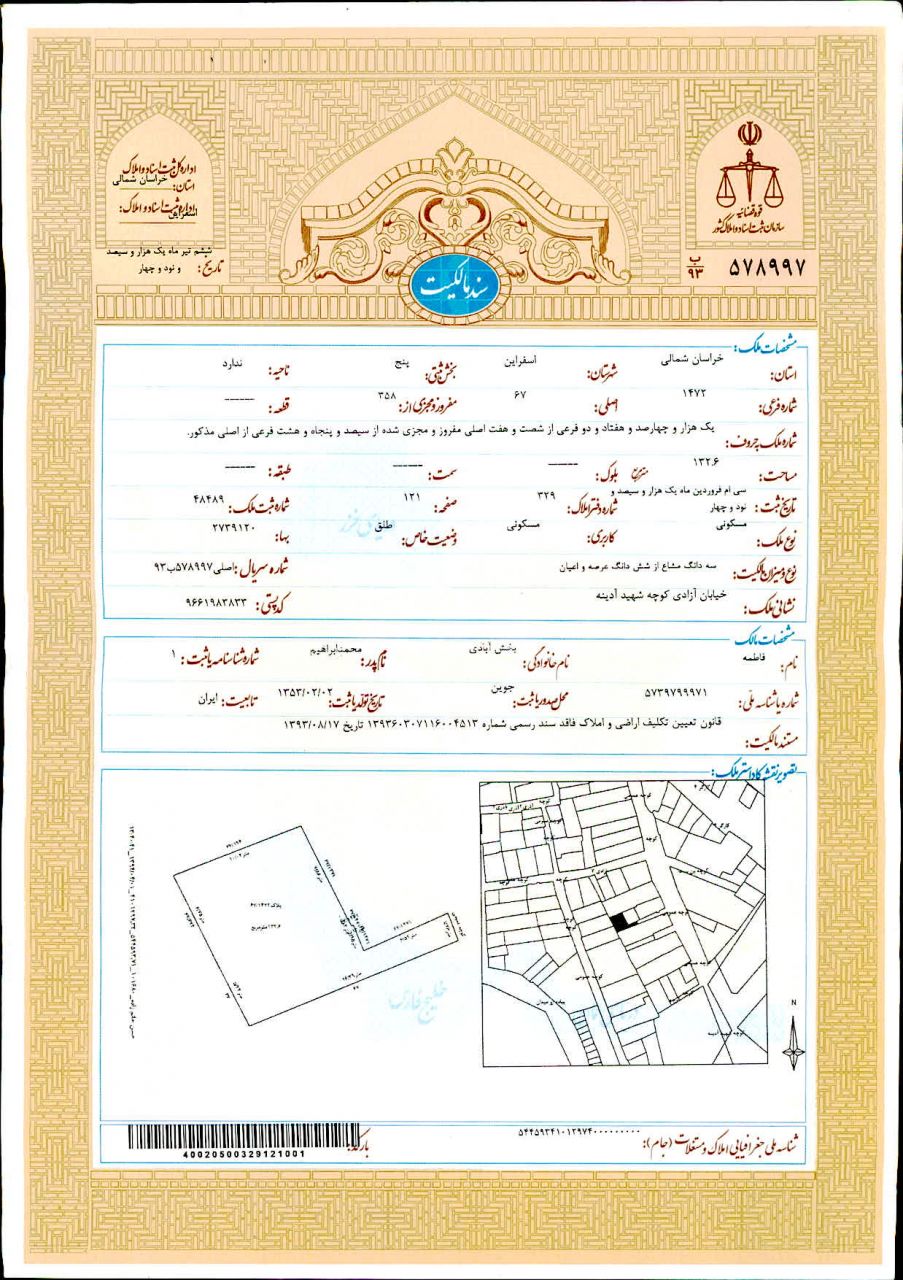 قوه قضائیه
سازمان ثبت اسناد و املاک کشور
ب
۹۳
۵۷۸۹۹۷
اداره کل ثبت اسناد و املاک
استان: خراسان شمالی
اداره ثبت اسناد و املاک:
اسفراین
تاریخ: ششم تیر ماه یک هزار و سیصد
و نود و چهار
سند مالکیت
مشخصات ملک:
استان: خراسان شمالی شهرستان: اسفراین بخش ثبتی: پنج ناحیه: ندارد
شماره فرعی: ۱۴۷۲ اصلی: ۶۷ مفروز و مجزی از: ۳۵۸ قطعه: ------
شماره ملک بحروف: یک هزار و چهارصد و هفتاد و دو فرعی از شصت و هفت اصلی مفروز و مجزی شده از سیصد و پنجاه و هشت فرعی از اصلی مذکور.
مساحت: ۱۳۲.۶ مترمربع بلوک: ------ سمت: ------ طبقه: ------
تاریخ ثبت: سی ام فروردین ماه یک هزار و سیصد و
نود و چهار
شماره دفتر املاک: ۳۲۹ صفحه: ۱۲۱ شماره ثبت ملک: ۴۸۴۸۹
نوع ملک: مسکونی کاربری: مسکونی وضعیت خاص: طلق بها: ۲۷۳۹۱۲۰
نوع و میزان مالکیت: سه دانگ مشاع از شش دانگ عرصه و اعیان شماره سریال: اصلی ۵۷۸۹۹۷ب۹۳
نشانی ملک: خیابان آزادی کوچه شهید آدینه کد پستی: ۹۶۶۱۹۸۳۸۳۳
مشخصات مالک
نام: فاطمه نام خانوادگی: بخش آبادی نام پدر: محمدابراهیم شماره شناسنامه یا ثبت: ۱
شماره یا شناسه ملی: ۵۷۳۹۷۹۹۹۷۱ محل صدور یا ثبت: جوین تاریخ تولد یا ثبت: ۱۳۵۳/۰۲/۰۲ تابعیت: ایران
مستند مالکیت: قانون تعیین تکلیف اراضی و املاک فاقد سند رسمی شماره ۱۳۹۳۶۰۳۰۷۱۱۶۰۰۴۵۱۳ تاریخ ۱۳۹۳/۰۸/۱۷
تصویر نقشه کاداستر ملک:
پلاک ۶۷/۱۴۷۲
N
خلیج فارس
شناسه ملی جغرافیایی املاک و مستغلات (جام): ۵۴۴۵۹۳۴۱۰۱۳۹۷۴۰۰۰۰۰۰۰۰۰
بارکد:
40020500329121001